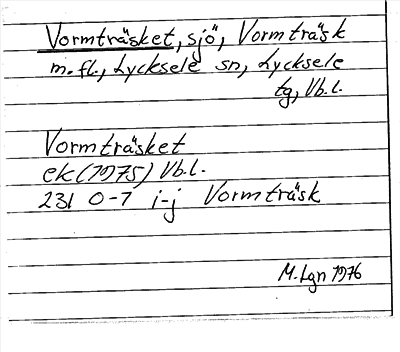 Vormträsket, sjö, Vormträsk
m.fl., Lycksele sn, Lycksele
tg, Vb.l.
Vormträsket
ek (1975) Vb.l.
231 0-7 i-j Vormträsk
M. Lgn 1976